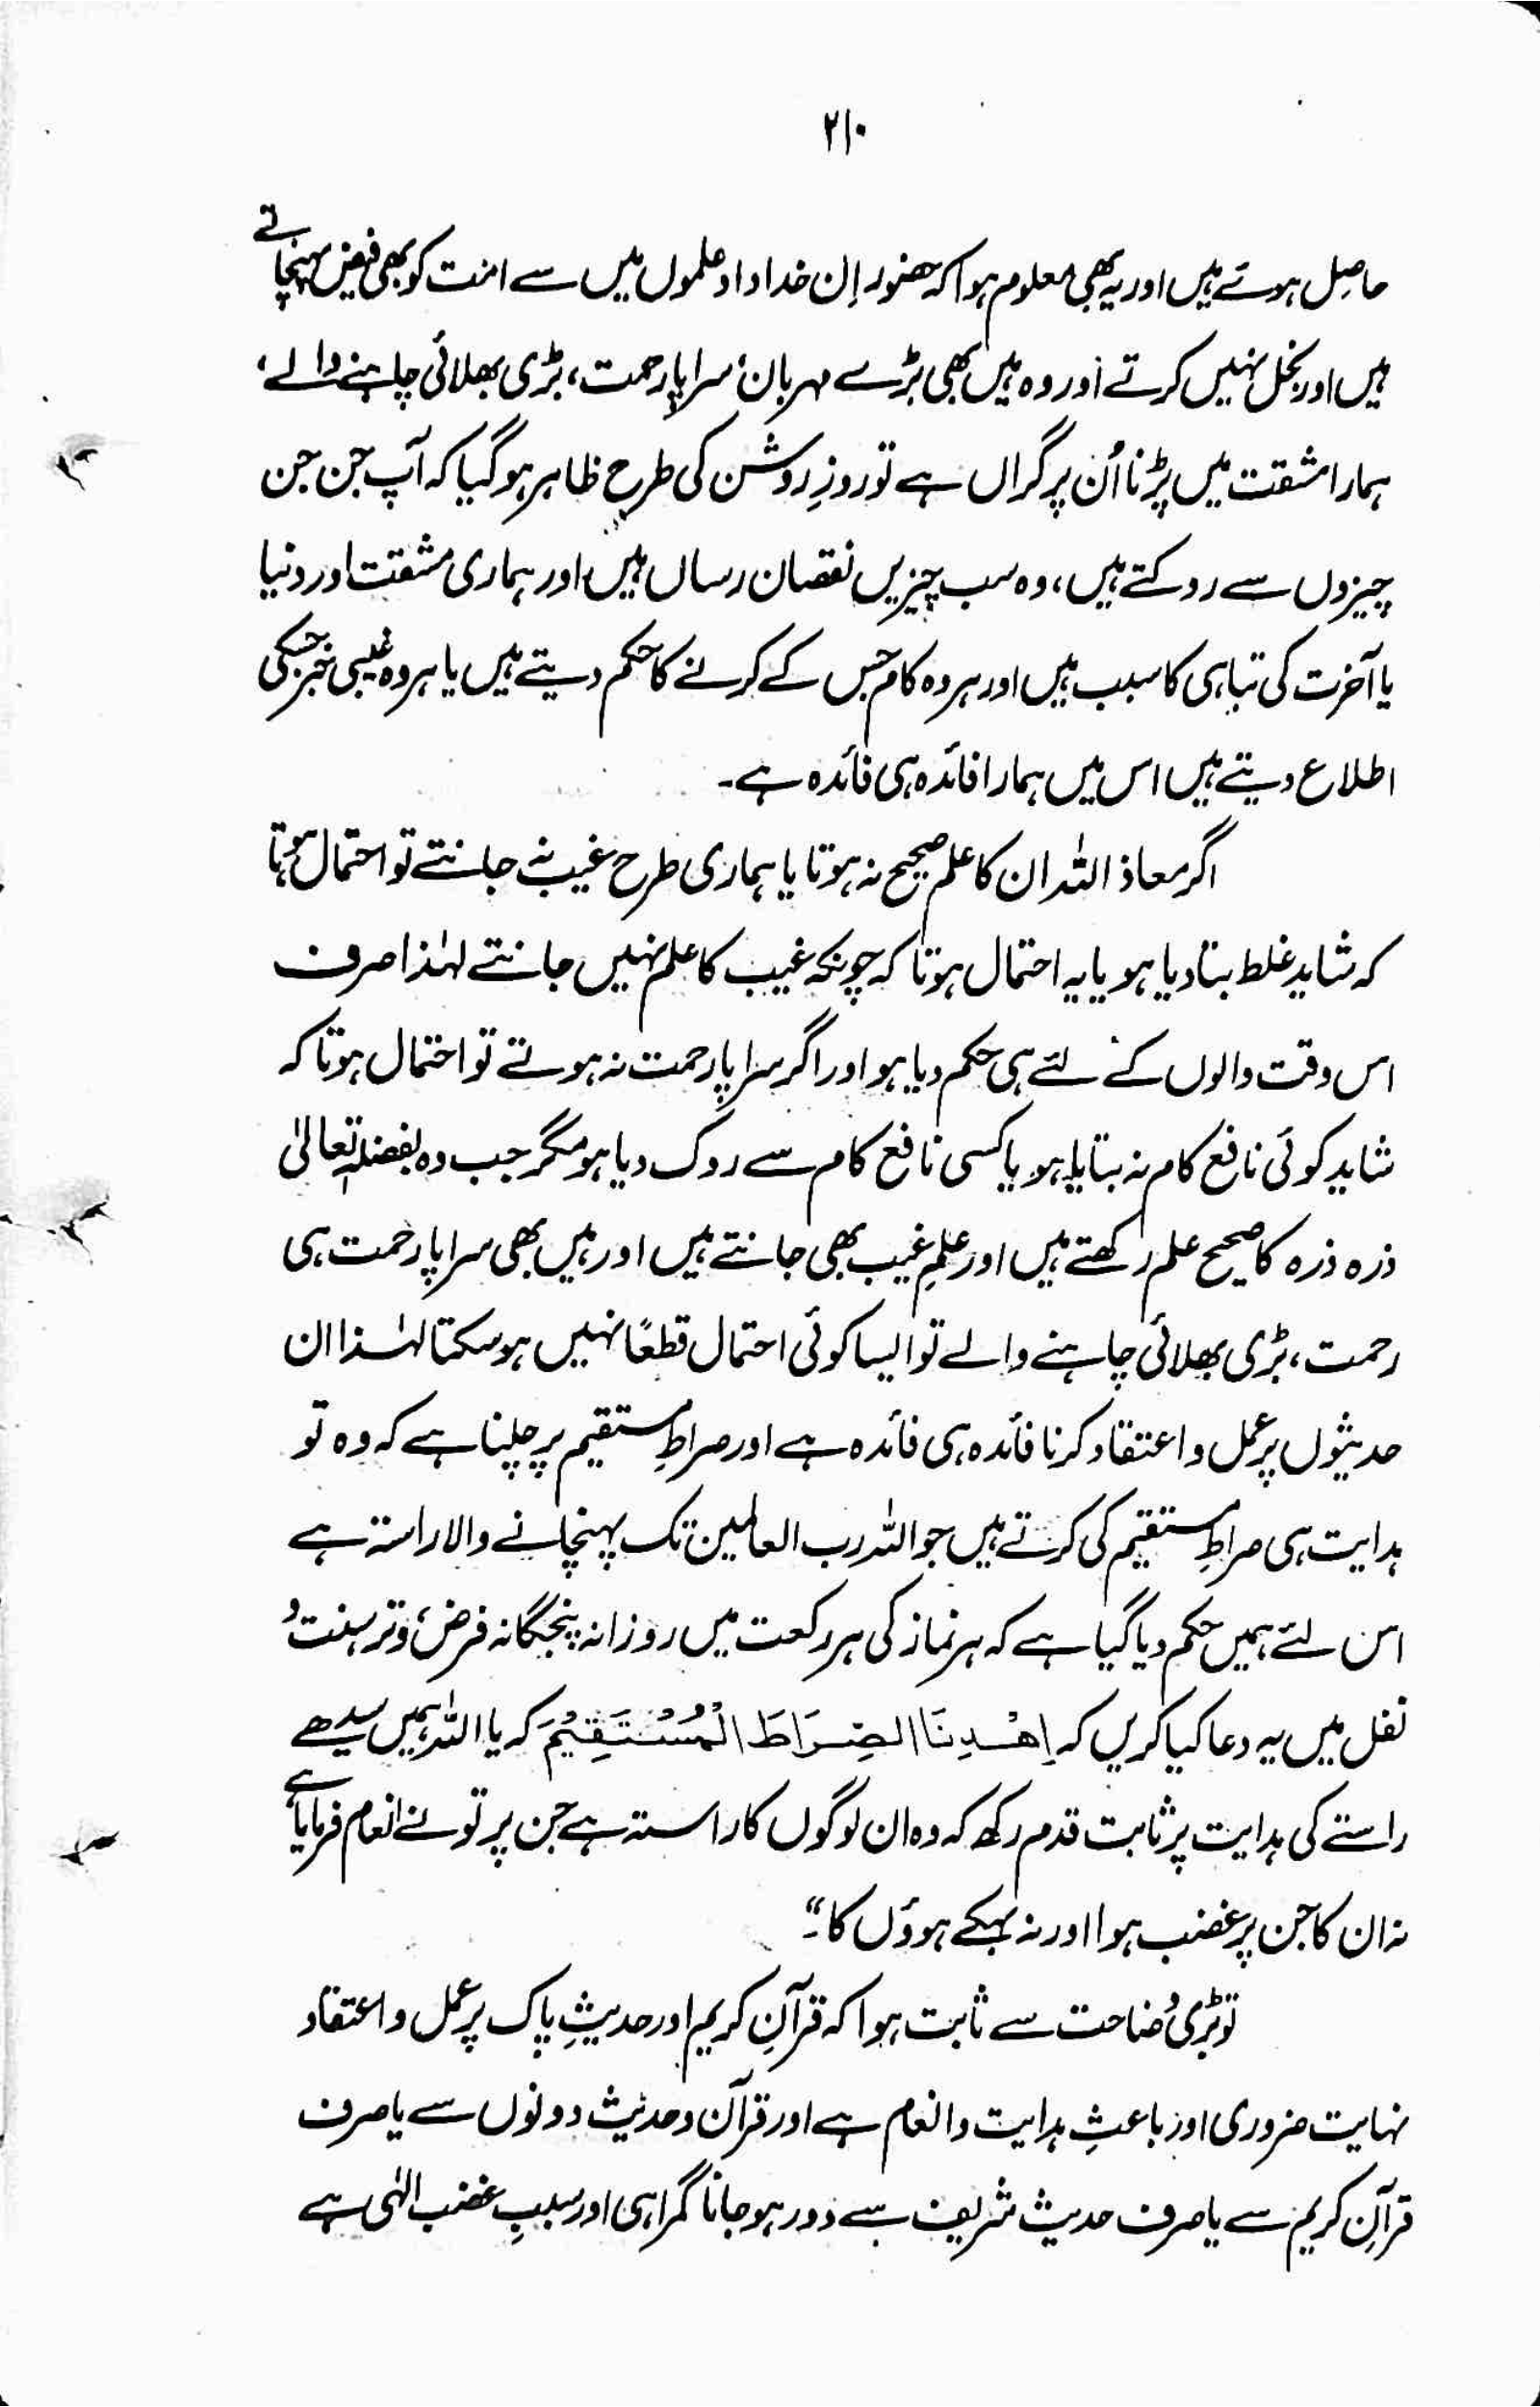 ۲۱۰
حاصل ہوئے ہیں اور یہ بھی معلوم ہوا کہ حضور اِن خداداد علموں میں سے امت کو بھی فیض پہنچاتے
ہیں اور بخل نہیں کرتے اور وہ ہیں بھی بڑے مہربان، سراپا رحمت، بڑی بھلائی چاہنے والے،
ہمارا مشقت میں پڑنا اُن پر گراں ہے تو روزِ روشن کی طرح ظاہر ہو گیا کہ آپ جن جن
چیزوں سے روکتے ہیں، وہ سب چیزیں نقصان رساں ہیں اور ہماری مشقت اور دنیا
یا آخرت کی تباہی کا سبب ہیں اور ہر وہ کام جس کے کرنے کا حکم دیتے ہیں یا ہر وہ غیبی خبر جسکی
اطلاع دیتے ہیں اس میں ہمارا فائدہ ہی فائدہ ہے۔
اگر معاذ اللہ ان کا علم صحیح نہ ہوتا یا ہماری طرح غیب نہ جانتے تو احتمال ہوتا
کہ شاید غلط بتا دیا ہو یا یہ احتمال ہوتا کہ چونکہ غیب کا علم نہیں جانتے لہٰذا صرف
اس وقت والوں کے لئے ہی حکم دیا ہو اور اگر سراپا رحمت نہ ہوتے تو احتمال ہوتا کہ
شاید کوئی نافع کام نہ بتایا ہو یا کسی نافع کام سے روک دیا ہو مگر جب وہ بفضلہٖ تعالیٰ
ذرہ ذرہ کا صحیح علم رکھتے ہیں اور علمِ غیب بھی جانتے ہیں اور ہیں بھی سراپا رحمت ہی
رحمت، بڑی بھلائی چاہنے والے تو ایسا کوئی احتمال قطعًا نہیں ہو سکتا لہٰذا ان
حدیثوں پر عمل و اعتقاد کرنا فائدہ ہی فائدہ ہے اور صراطِ مستقیم پر چلنا ہے کہ وہ تو
ہدایت ہی صراطِ مستقیم کی کرتے ہیں جو اللہ رب العالمین تک پہنچانے والا راستہ ہے
اس لئے ہمیں حکم دیا گیا ہے کہ ہر نماز کی ہر رکعت میں روزانہ پنجگانہ فرض، وتر سنت و
نفل میں یہ دعا کیا کریں کہ اِهْدِنَا الصِّرَاطَ الْمُسْتَقِيْمَ کہ یا اللہ ہمیں سیدھے
راستے کی ہدایت پر ثابت قدم رکھ کہ وہ ان لوگوں کا راستہ ہے جن پر تو نے انعام فرمایا ہے
نہ ان کا جن پر غضب ہوا اور نہ بہکے ہوؤں کا۔“
تو بڑی وُضاحت سے ثابت ہوا کہ قرآنِ کریم اور حدیثِ پاک پر عمل و اعتقاد
نہایت ضروری اور باعثِ ہدایت و انعام ہے اور قرآن و حدیث دونوں سے یا صرف
قرآنِ کریم سے یا صرف حدیث شریف سے دور ہو جانا گمراہی اور سببِ غضب الٰہی ہے